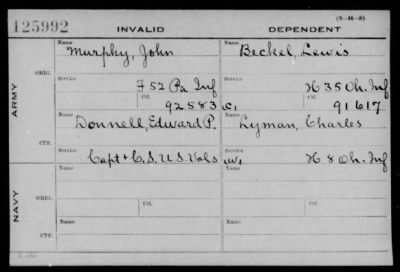 (3-14-5)
125992
INVALID
DEPENDENT
ARMY
ORIG.
Name
Murphy, John
Name
Beckel, Lewis
Service
F 52 Pa Inf
Service
H 35 Oh. Inf
Ctf.
92583
Ctf.
91617
CTF.
Name
Donnell, Edward P.
Name
Lyman, Charles
Service
Capt + C. S. U.S. Vols
Service
H 8 Oh. Inf
NAVY
ORIG.
Name
Name
Ctf.
Ctf.
CTF.
Name
Name